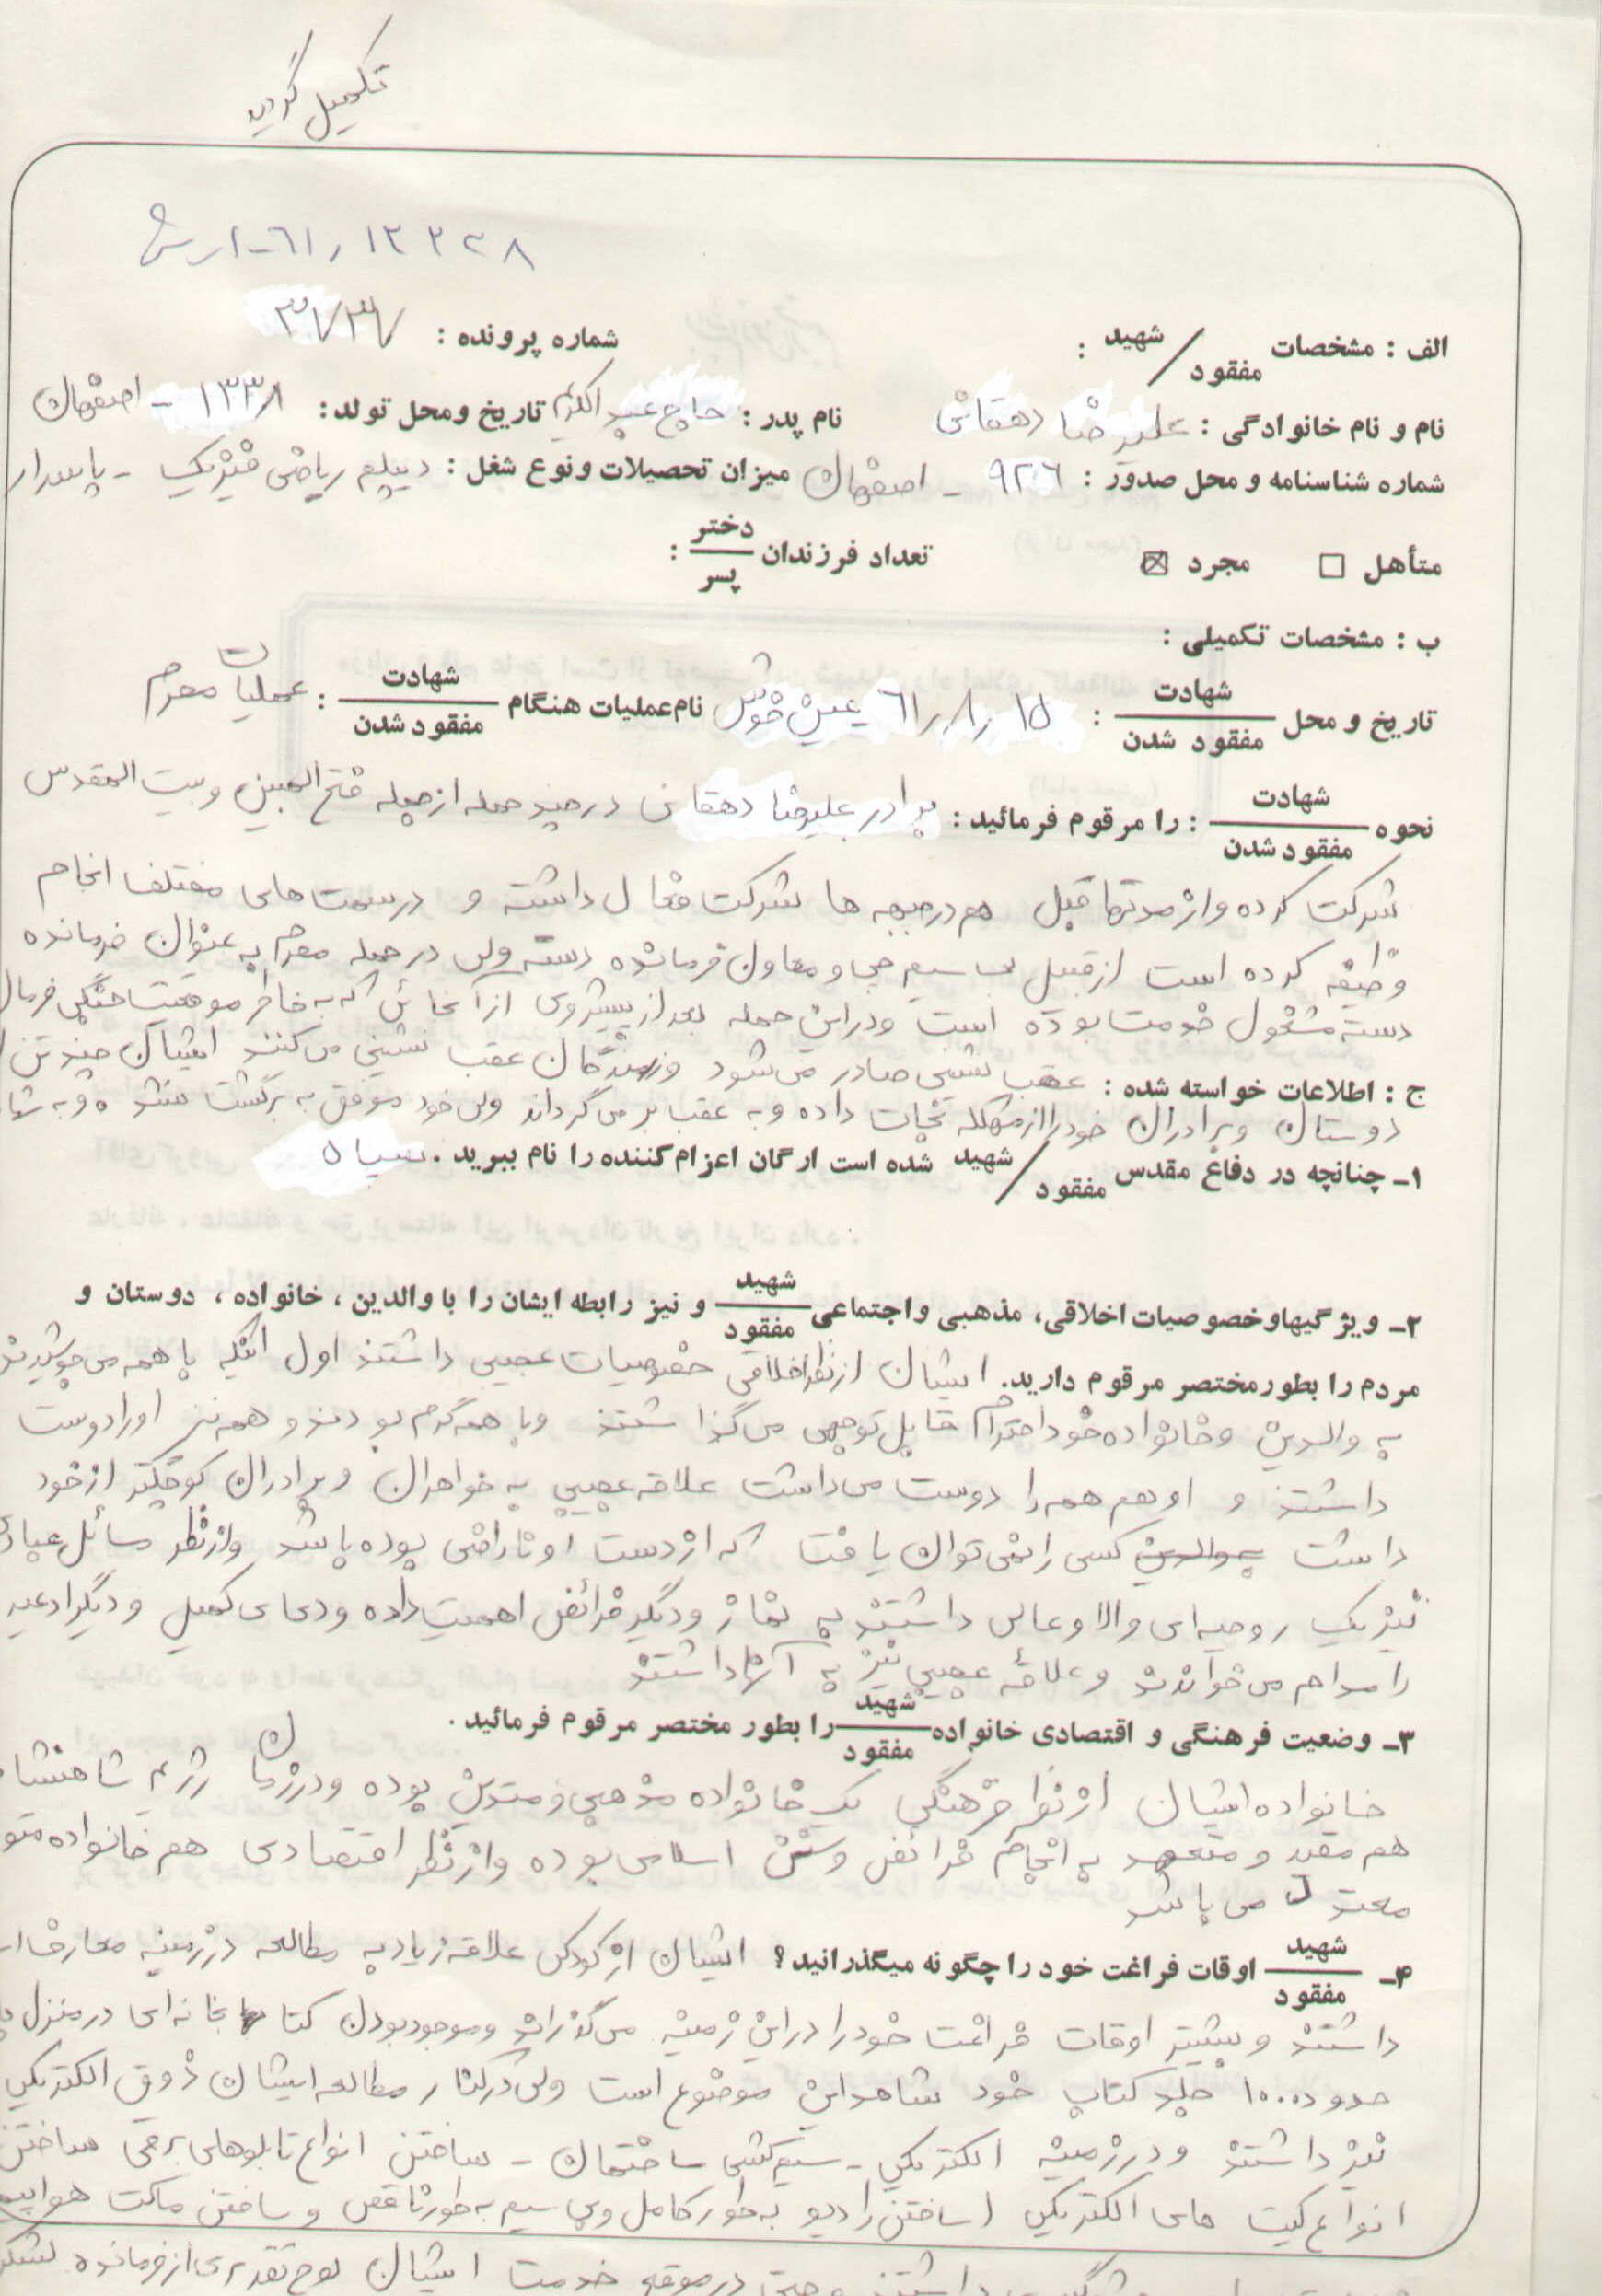 تکمیل گردید
۶۱-۱ر س ۱۲۲۲۸
الف : مشخصات شهید / مفقود : شماره پرونده :
نام و نام خانوادگی : علیرضا دهقانی نام پدر : حاج عبدالکریم تاریخ ومحل تولد : ۱۳۳۸ - اصفهان
شماره شناسنامه و محل صدور : ۹۲۶ - اصفهان میزان تحصیلات ونوع شغل : دیپلم ریاضی فیزیک - پاسدار
متأهل □ مجرد ☒ تعداد فرزندان دختر / پسر :
ب : مشخصات تکمیلی :
تاریخ و محل شهادت / مفقود شدن : ۶۱٫۸٫۱۵ عین خوش نام عملیات هنگام شهادت / مفقود شدن : عملیات محرم
نحوه شهادت / مفقود شدن : را مرقوم فرمائید : برادر علیرضا دهقانی در چند حمله از جمله فتح المبین و بیت المقدس
شرکت کرده و از مدتها قبل هم در جبهه ها شرکت فعال داشته و در سمت های مختلف انجام
وظیفه کرده است از قبیل بی سیم چی و معاون فرمانده دسته ولی در حمله محرم به عنوان فرمانده
دسته مشغول خدمت بوده است و در این حمله بعد از پیشروی از آنجائی که به خاطر موقعیت جنگی فرمان
عقب نشینی صادر می شود و رزمندگان عقب نشینی می کنند ایشان چند تن
ج : اطلاعات خواسته شده :
دوستان و برادران خود را از مهلکه نجات داده و به عقب بر می گرداند ولی خود موفق به برگشت نشده و به
۱- چنانچه در دفاع مقدس شهید / مفقود شده است ارگان اعزام کننده را نام ببرید . سپاه
۲- ویژگیهاوخصوصیات اخلاقی، مذهبی واجتماعی شهید / مفقود و نیز رابطه ایشان را با والدین ، خانواده ، دوستان و
مردم را بطور مختصر مرقوم دارید. ایشان از نظر اخلاقی خصوصیات عجیبی داشتند اول اینکه با همه می جوشیدند
به والدین و خانواده خود احترام قابل توجهی می گذاشتند و با همه گرم بودند و همه نیز او را دوست
داشتند و او هم همه را دوست می داشت علاقه عجیبی به خواهران و برادران کوچکتر از خود
داشت کسی را نمی توان یافت که از دست او ناراضی بوده باشد و از نظر مسائل عبادی
نیز یک روحیه ای والا و عالی داشتند به نماز و دیگر فرائض اهمیت داده و دعای کمیل و دیگر ادعیه
را مداوم می خواندند و علاقه عجیبی نیز به آنها داشتند
۳- وضعیت فرهنگی و اقتصادی خانواده شهید / مفقود را بطور مختصر مرقوم فرمائید .
خانواده ایشان از نظر فرهنگی یک خانواده مذهبی و متدین بوده و در زمان رژیم شاهنشاهی
هم مقید و متعهد به انجام فرائض و سنن اسلامی بوده و از نظر اقتصادی هم خانواده
معتدل می باشد
۴- شهید / مفقود اوقات فراغت خود را چگونه میگذرانید ؟ ایشان از کودکی علاقه زیاد به مطالعه در زمینه معارف
داشتند و بیشتر اوقات فراغت خود را در این زمینه می گذراند و موجود بودن کتابخانه ای در منزل با
حدود ۱۰۰۰ جلد کتاب خود شاهد این موضوع است ولی در کنار مطالعه ایشان ذوق الکتریکی
نیز داشتند و در زمینه الکتریکی - سیم کشی ساختمان - ساختن انواع تابلوهای برقی ساختن
انواع کیت های الکتریکی (ساختن رادیو به طور کامل و بی سیم به طور ناقص و ساختن ماکت هواپیما
داشتند و حتی در موقع خدمت ایشان لوح تقدیری از فرمانده لشکر